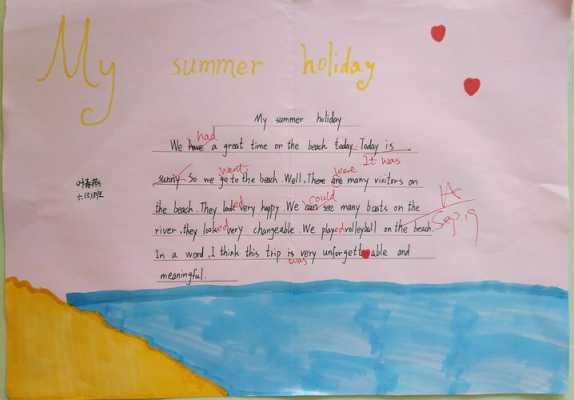 My summer holiday
My summer holiday
had
We have a great time on the beach today. Today is
It was
sunny. So we go to the beach. Well, There are many visitors on
went
were
the beach. They looked very happy. We can see many boats on the
could
river. they looked very changeable. We played volleyball on the beach.
In a word, I think this trip is very unforgettable and
was
meaningful.
A
Sep.19